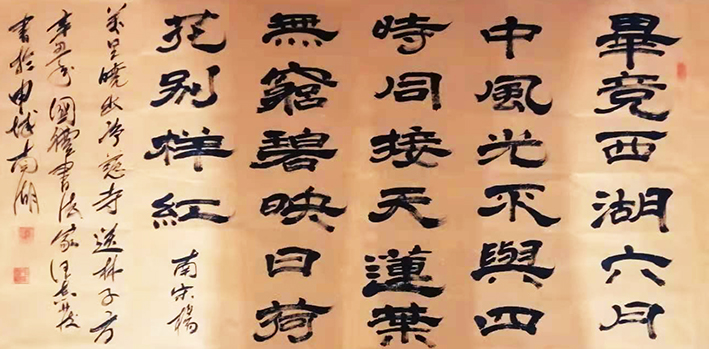 畢竟西湖六月
中風光不與四
時同接天蓮葉
無窮碧映日荷
花别样紅 南宋楊
萬里曉出净慈寺送林子方
辛丑 國禮書法家汪
書於申城南湖